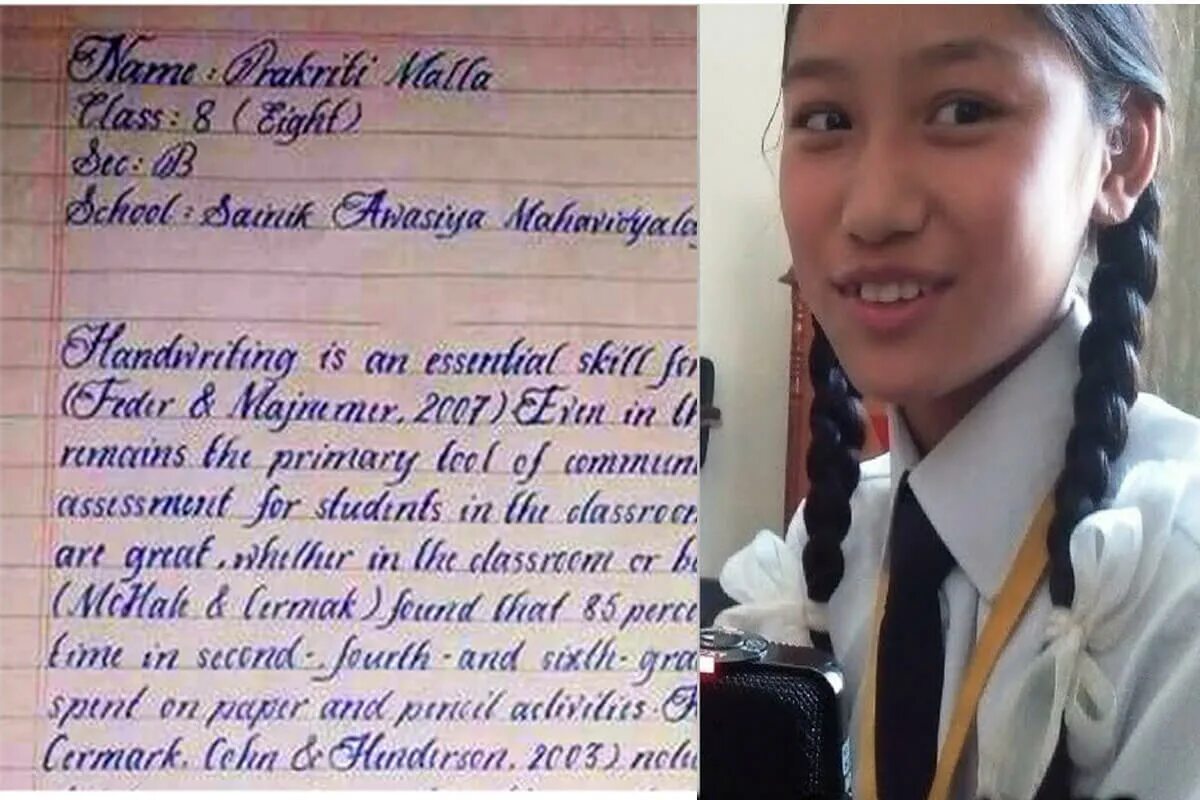 Name: Prakriti Malla
Class: 8 (Eight)
Sec: B
School: Sainik Awasiya Mahavidyala
Handwriting is an essential skill for
(Feder & Majnemer, 2007) Even in th
remains the primary tool of commun
assessment for students in the classroom
are great, whether in the classroom or b
(McHale & Cermak) found that 85 perce
time in second-, fourth-and sixth-gra
spent on paper and pencil activities.
Cermark, Cohn & Henderson, 2003) note